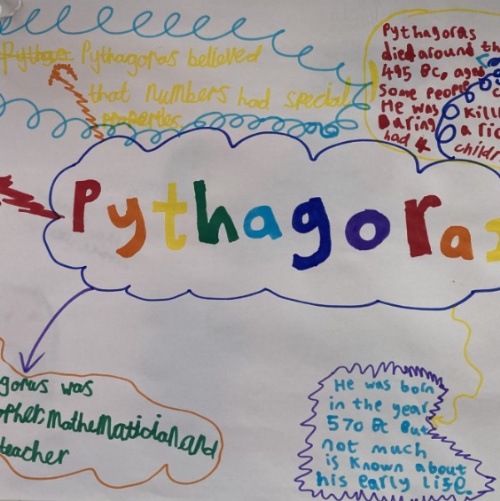 Pythagoras believed
that numbers had special
properties
Pythagoras
died around the
495 Bc, aged
some people
He was
Daring
had 4
Kill
a ri
childr
Pythagoras
goras was
opher, mathematician and
teacher
He was born
in the year
570 Bc But
not much
is known about
his early life.